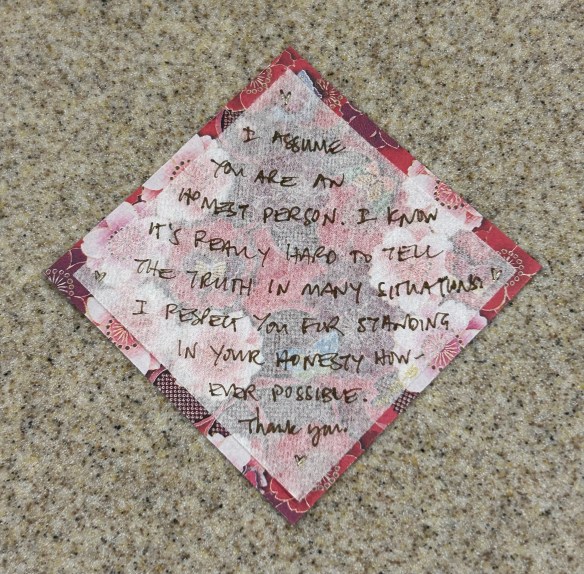 I ASSUME
YOU ARE AN
HONEST PERSON. I KNOW
IT'S REALLY HARD TO TELL
THE TRUTH IN MANY SITUATIONS!
I RESPECT YOU FOR STANDING
IN YOUR HONESTY HOW-
EVER POSSIBLE.
Thank you.